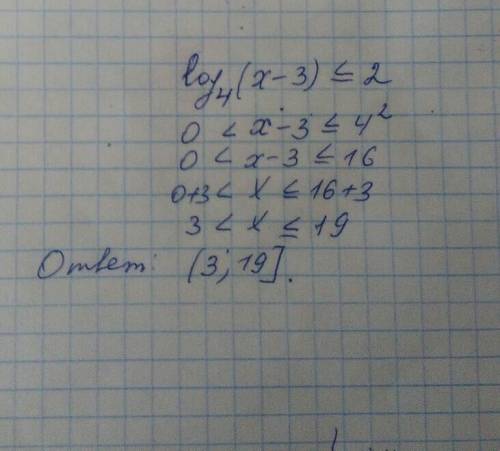 log₄(x-3) ≤ 2
0 < x-3 ≤ 4²
0 < x-3 ≤ 16
0+3 < x ≤ 16+3
3 < x ≤ 19
Ответ: (3; 19].